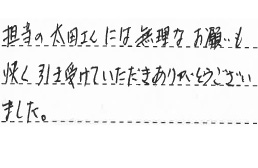 担当の太田さんには無理なお願いも
快く引き受けていただきありがとうござい
ました。